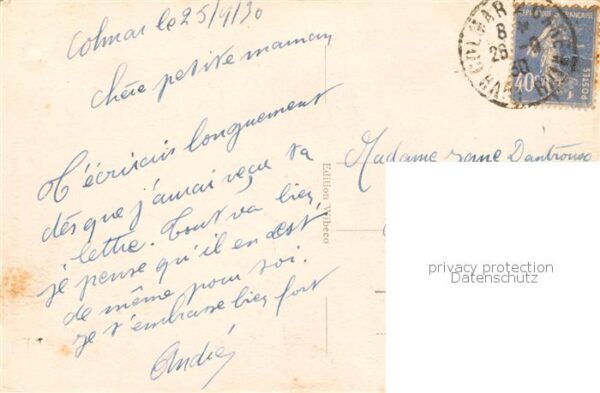 Colmar le 25/9/30
chère petite maman
T'écrirais longuement
dès que j'aurai reçu ta
lettre. Tout va bien,
je pense qu'il en est
de même pour toi.
Je t'embrasse bien fort
André
Edition Wibeco
Madame
COLMAR
8
26 - 9
30
RÉPUBLIQUE FRANÇAISE
40
POSTES
privacy protection
Datenschutz